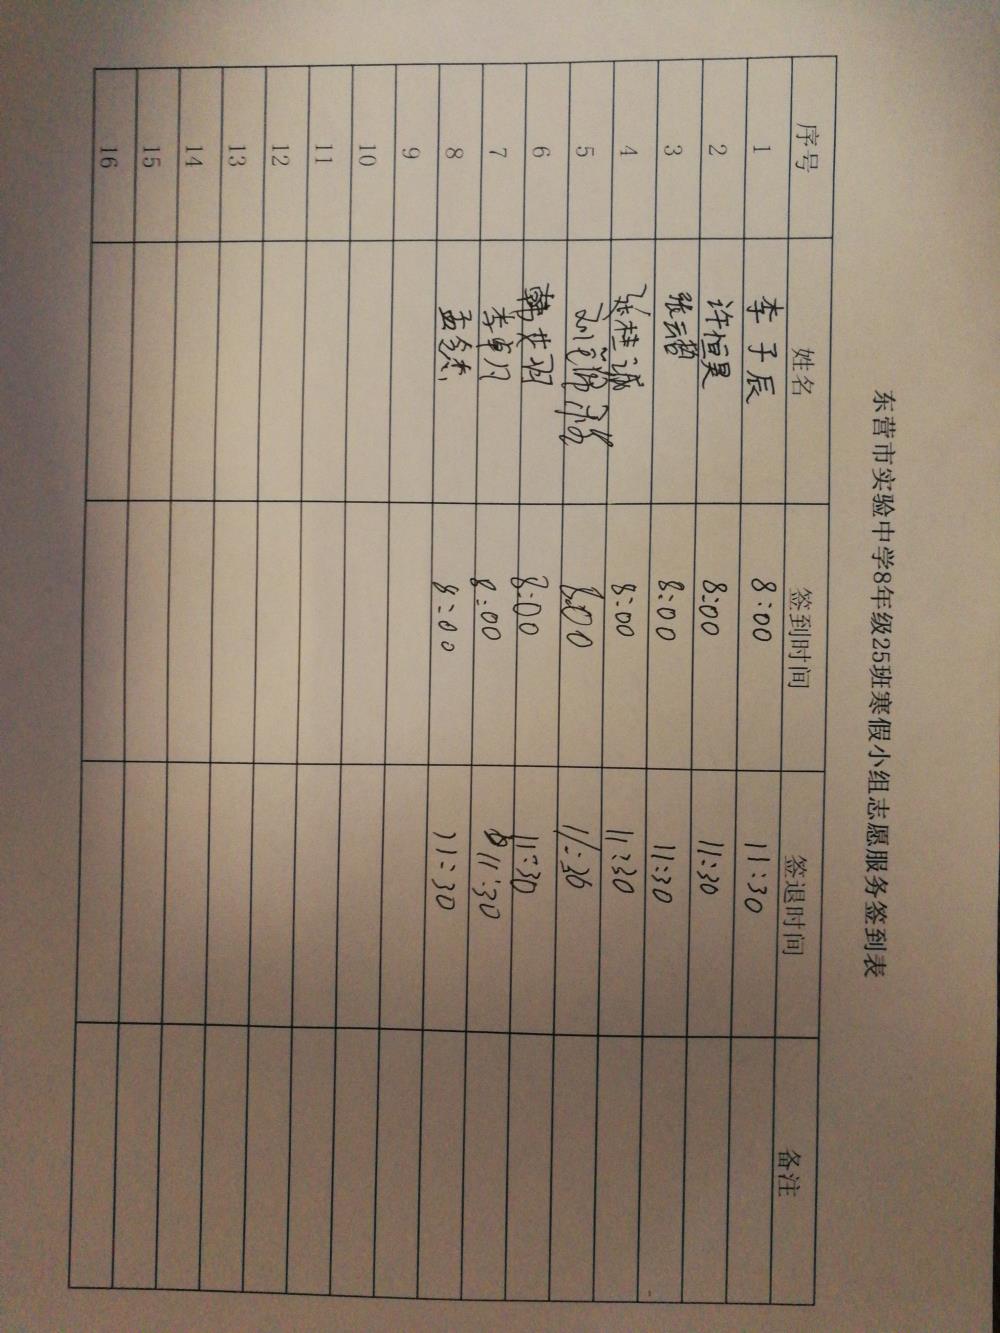 东营市实验中学8年级25班寒假小组志愿服务签到表
序号 姓名 签到时间 签退时间 备注
1 李子辰 8:00 11:30
2 许恒昊 8:00 11:30
3 张云皓 8:00 11:30
4 张桂诚 8:00 11:30
5 8:00 11:30
6 8:00 11:30
7 李卓凡 8:00 11:30
8 孟念杰 8:00 11:30
9
10
11
12
13
14
15
16